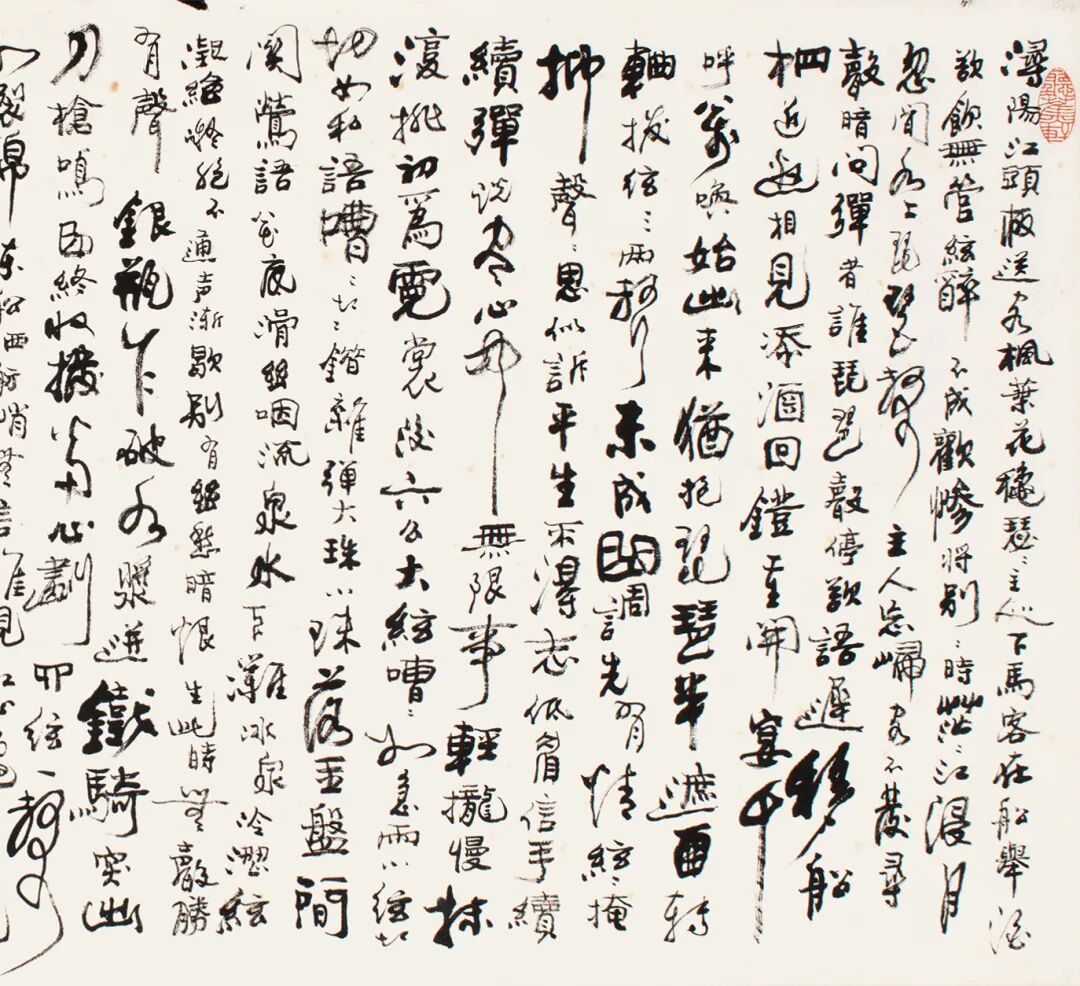 潯陽江頭夜送客楓葉花穐瑟〻主人下馬客在船舉酒
欲飲無管絃醉不成歡慘將別〻時茫〻江浸月
忽聞水上琵琶聲主人忘歸客不發尋
聲暗問彈者誰琵琶聲停欲語遲移船
相近邀相見添酒回鐙重開宴千
呼萬喚始出來猶抱琵琶半遮面轉
軸撥絃三兩聲未成曲調先有情絃〻掩
抑聲〻思似訴平生不得志低眉信手續
續彈説盡心中無限事輕攏慢抹
復挑初爲霓裳後六幺大絃嘈〻如急雨小絃切
切如私語嘈〻切〻錯雜彈大珠小珠落玉盤間
関鶯語花底滑幽咽流泉水下灘冰泉冷澀絃
凝絶凝絶不通声漸歇別有幽愁暗恨生此時無聲勝
有聲銀瓶乍破水漿迸鐵騎突出
刀槍鳴曲終收撥當心劃四絃一聲
如裂帛東船西舫悄無言唯見江心